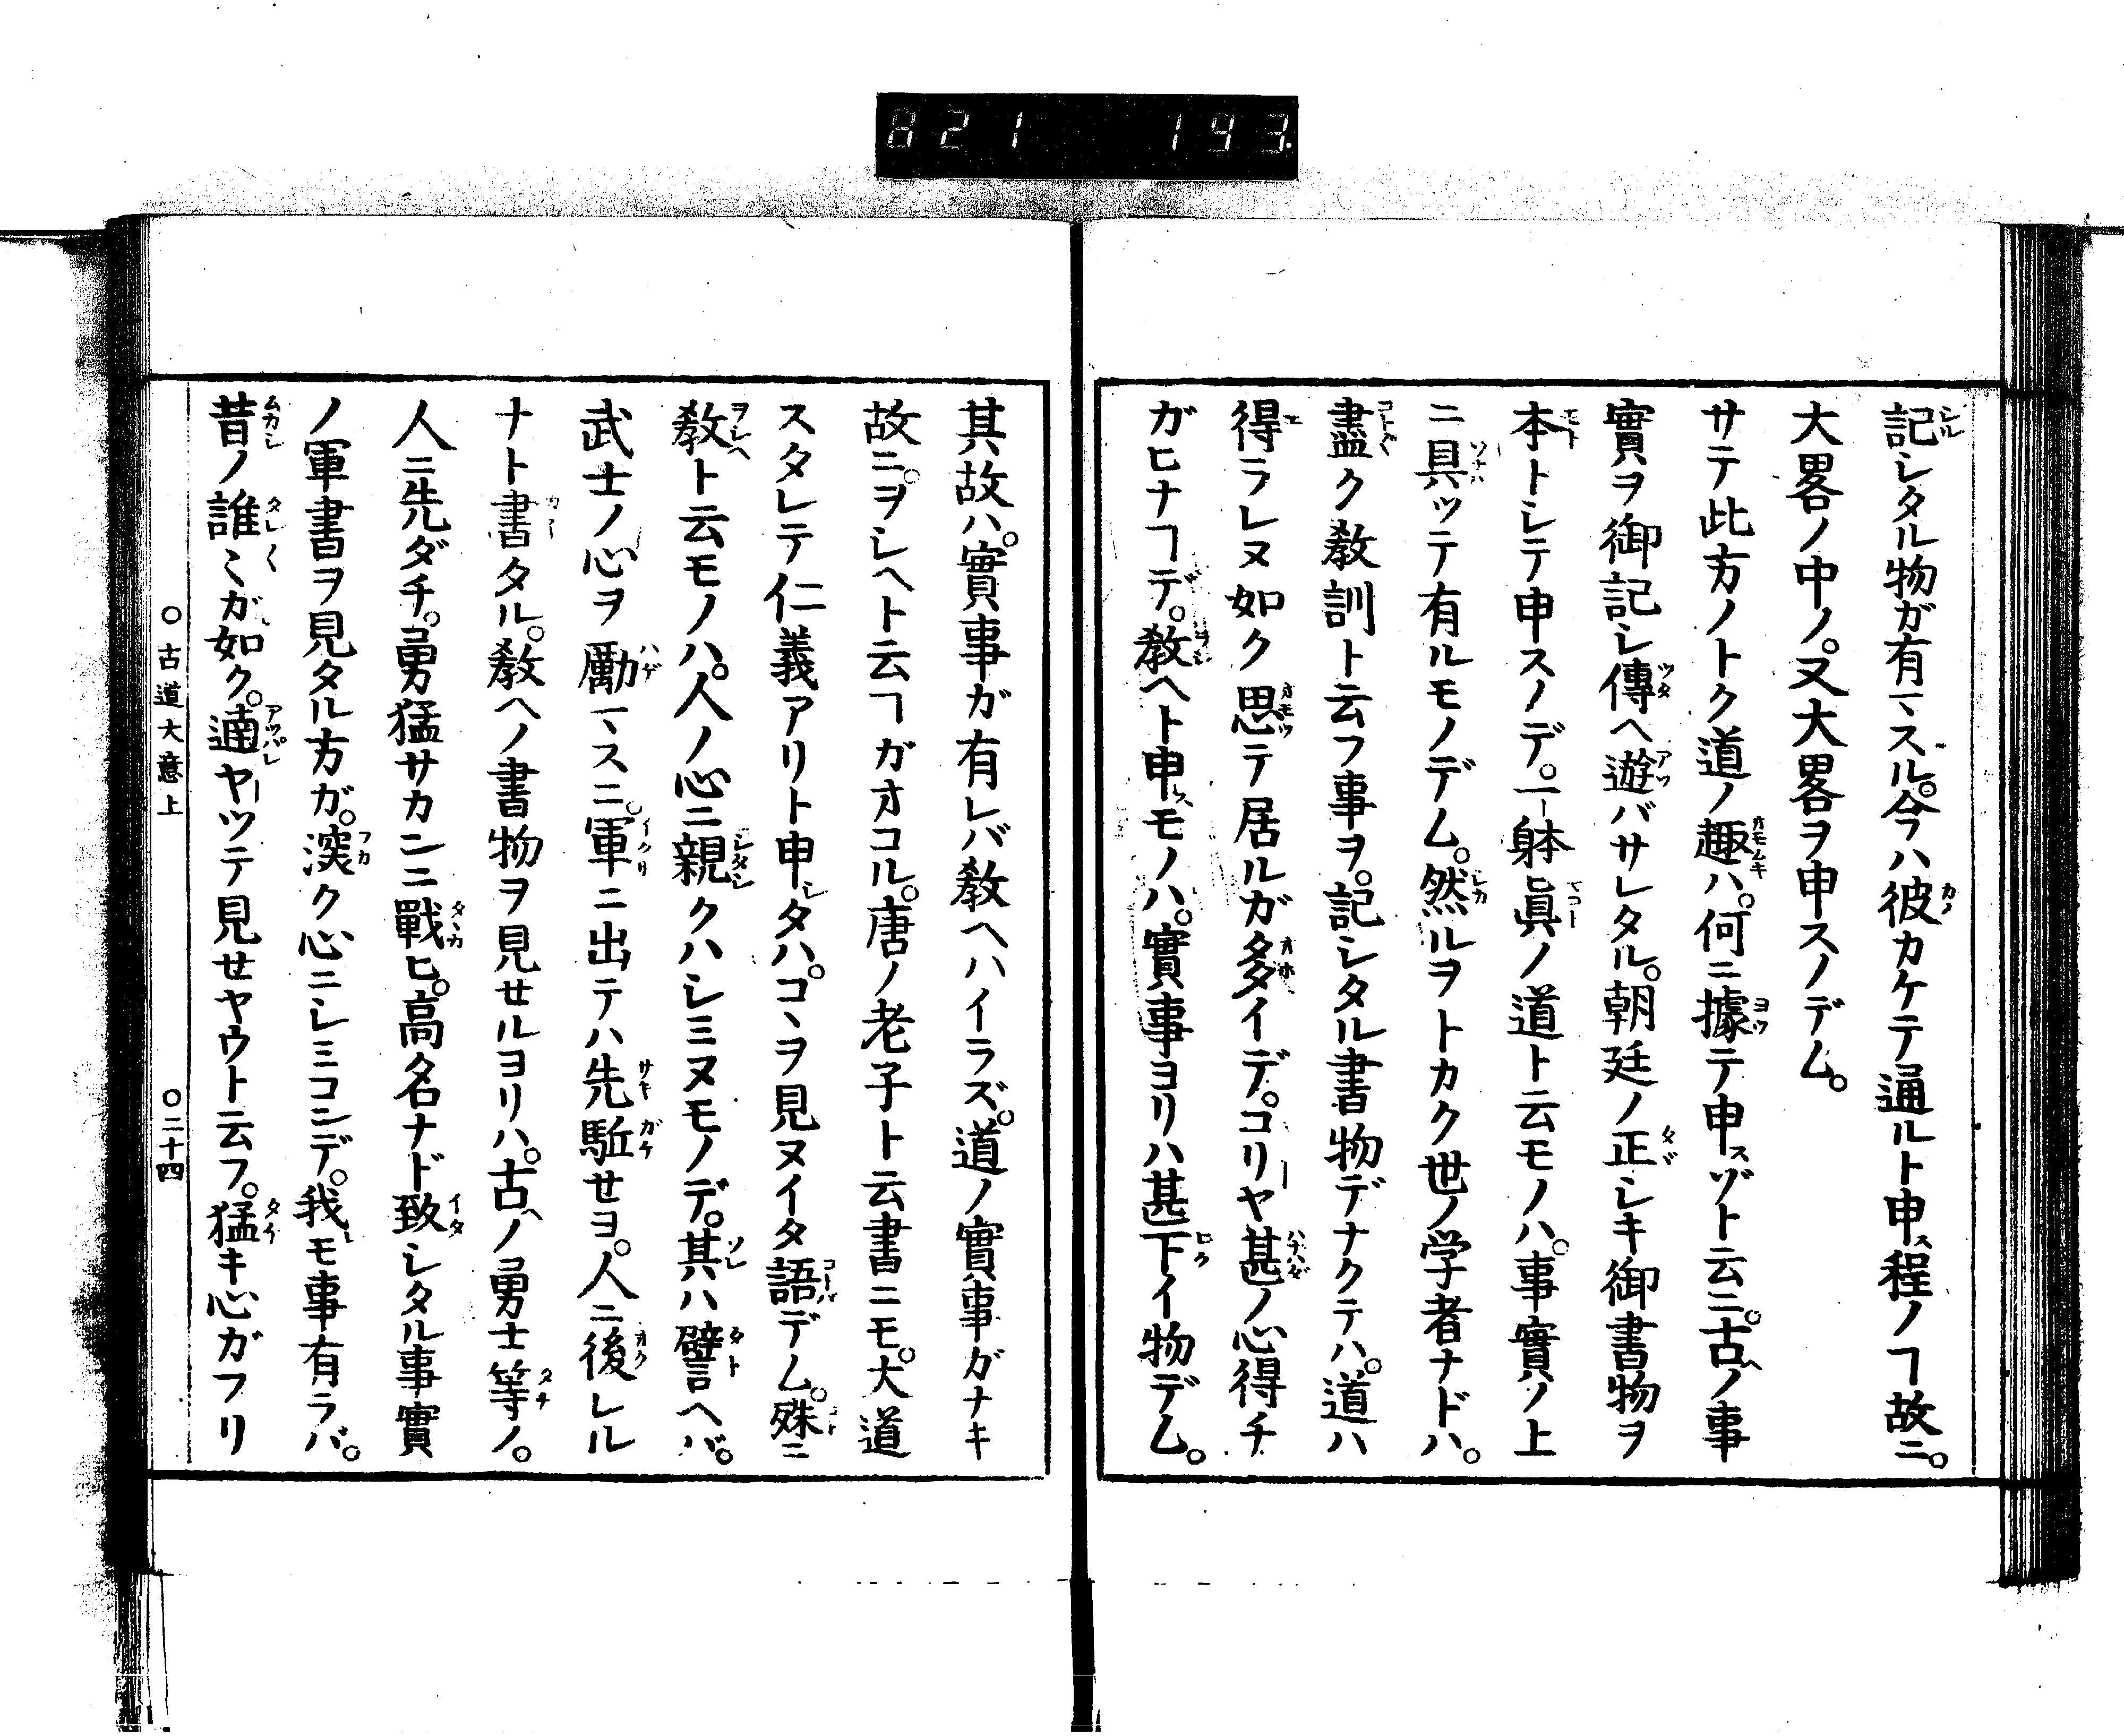 821 193.
記シタル物ガ有マスル。今ハ彼カケテ通ルト申ス程ノヿ故ニ。
大畧ノ中ノ。又大畧ヲ申スノデム。
サテ此方ノトク道ノ趣ハ。何ニ據テ申スゾト云ニ。古ヘノ事
實ヲ御記シ傳ヘ遊バサレタル。朝廷ノ正シキ御書物ヲ
本トシテ申スノデ。一躰眞ノ道ト云モノハ。事實ノ上
ニ具ツテ有ルモノデム。然ルヲトカク世ノ学者ナドハ。
盡ク教訓ト云フ事ヲ。記シタル書物デナクテハ。道ハ
得ラレヌ如ク思テ居ルガ多イデ。コリヤ甚ノ心得チ
ガヒナヿデ。教ヘト申スモノハ。實事ヨリハ甚下イ物デム。
其故ハ。實事ガ有レバ教ヘハイラズ。道ノ實事ガナキ
故ニ。ヲシヘト云ヿガオコル。唐ノ老子ト云書ニモ。大道
スタレテ仁義アリト申シタハ。コヽヲ見ヌイタ語デム。殊ニ
教ト云モノハ。人ノ心ニ親クハシミヌモノデ。其ハ譬ヘバ。
武士ノ心ヲ勵マスニ。軍ニ出テハ先駈セヨ。人ニ後レル
ナト書タル。教ヘノ書物ヲ見セルヨリハ。古ヘノ勇士等ノ。
人ニ先ダチ。勇猛サカンニ戰ヒ。高名ナド致シタル事實
ノ軍書ヲ見タル方ガ。深ク心ニシミコンデ。我モ事有ラバ。
昔ノ誰〻ガ如ク。遖ヤツテ見セヤウト云フ。猛キ心ガフリ
○古道大意上 ○二十四